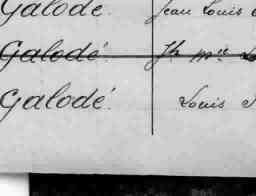 Galodé. Jean Louis
Galodé. Jh
Galodé. Louis